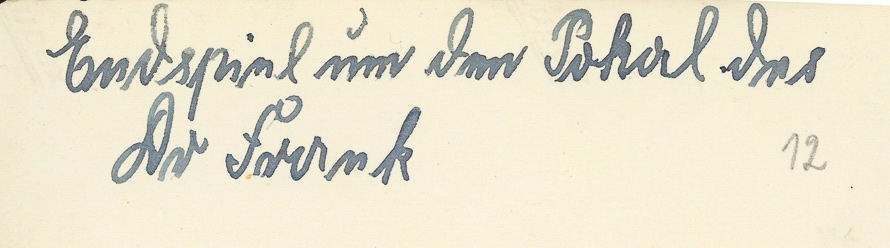 Endspiel um den Pokal des
Dr Frank
12